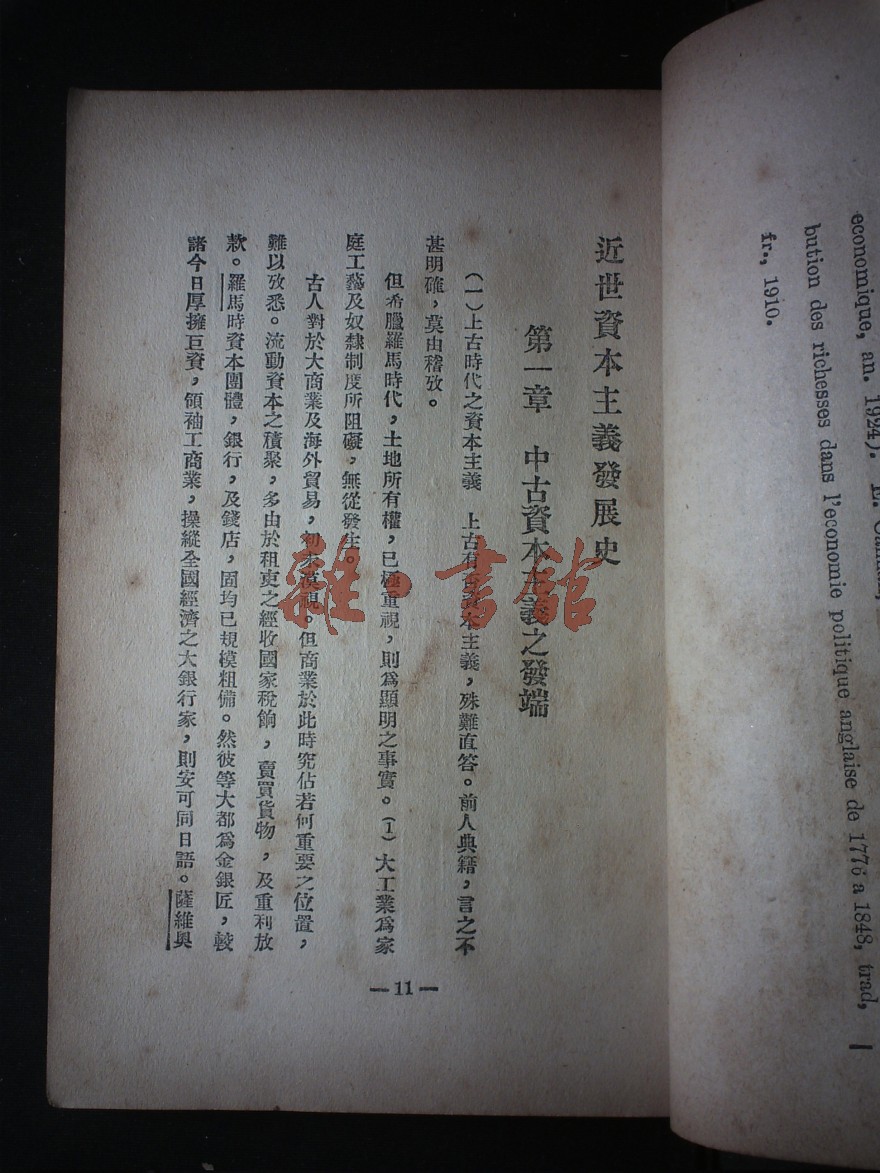 近世資本主義發展史
第一章　中古資本主義之發端
（一）上古時代之資本主義　上古有無資本主義，殊難直答。前人典籍，言之不
甚明確，莫由稽攷。
但希臘羅馬時代，土地所有權，已極重視，則爲顯明之事實。（1）大工業爲家
庭工藝及奴隸制度所阻礙，無從發生。
古人對於大商業及海外貿易，初未漠視。但商業於此時究佔若何重要之位置，
難以攷悉。流動資本之積聚，多由於租吏之經收國家稅餉，賣買貨物，及重利放
款。羅馬時資本團體，銀行，及錢店，固均已規模粗備。然彼等大都爲金銀匠，較
諸今日厚擁巨資，領袖工商業，操縱全國經濟之大銀行家，則安可同日語。薩維奧
— 11 —
雜·書館
economique, an. 1924). E.
bution des richesses dans l'economie politique anglaise de 1776 a 1848, trad,
fr., 1910.